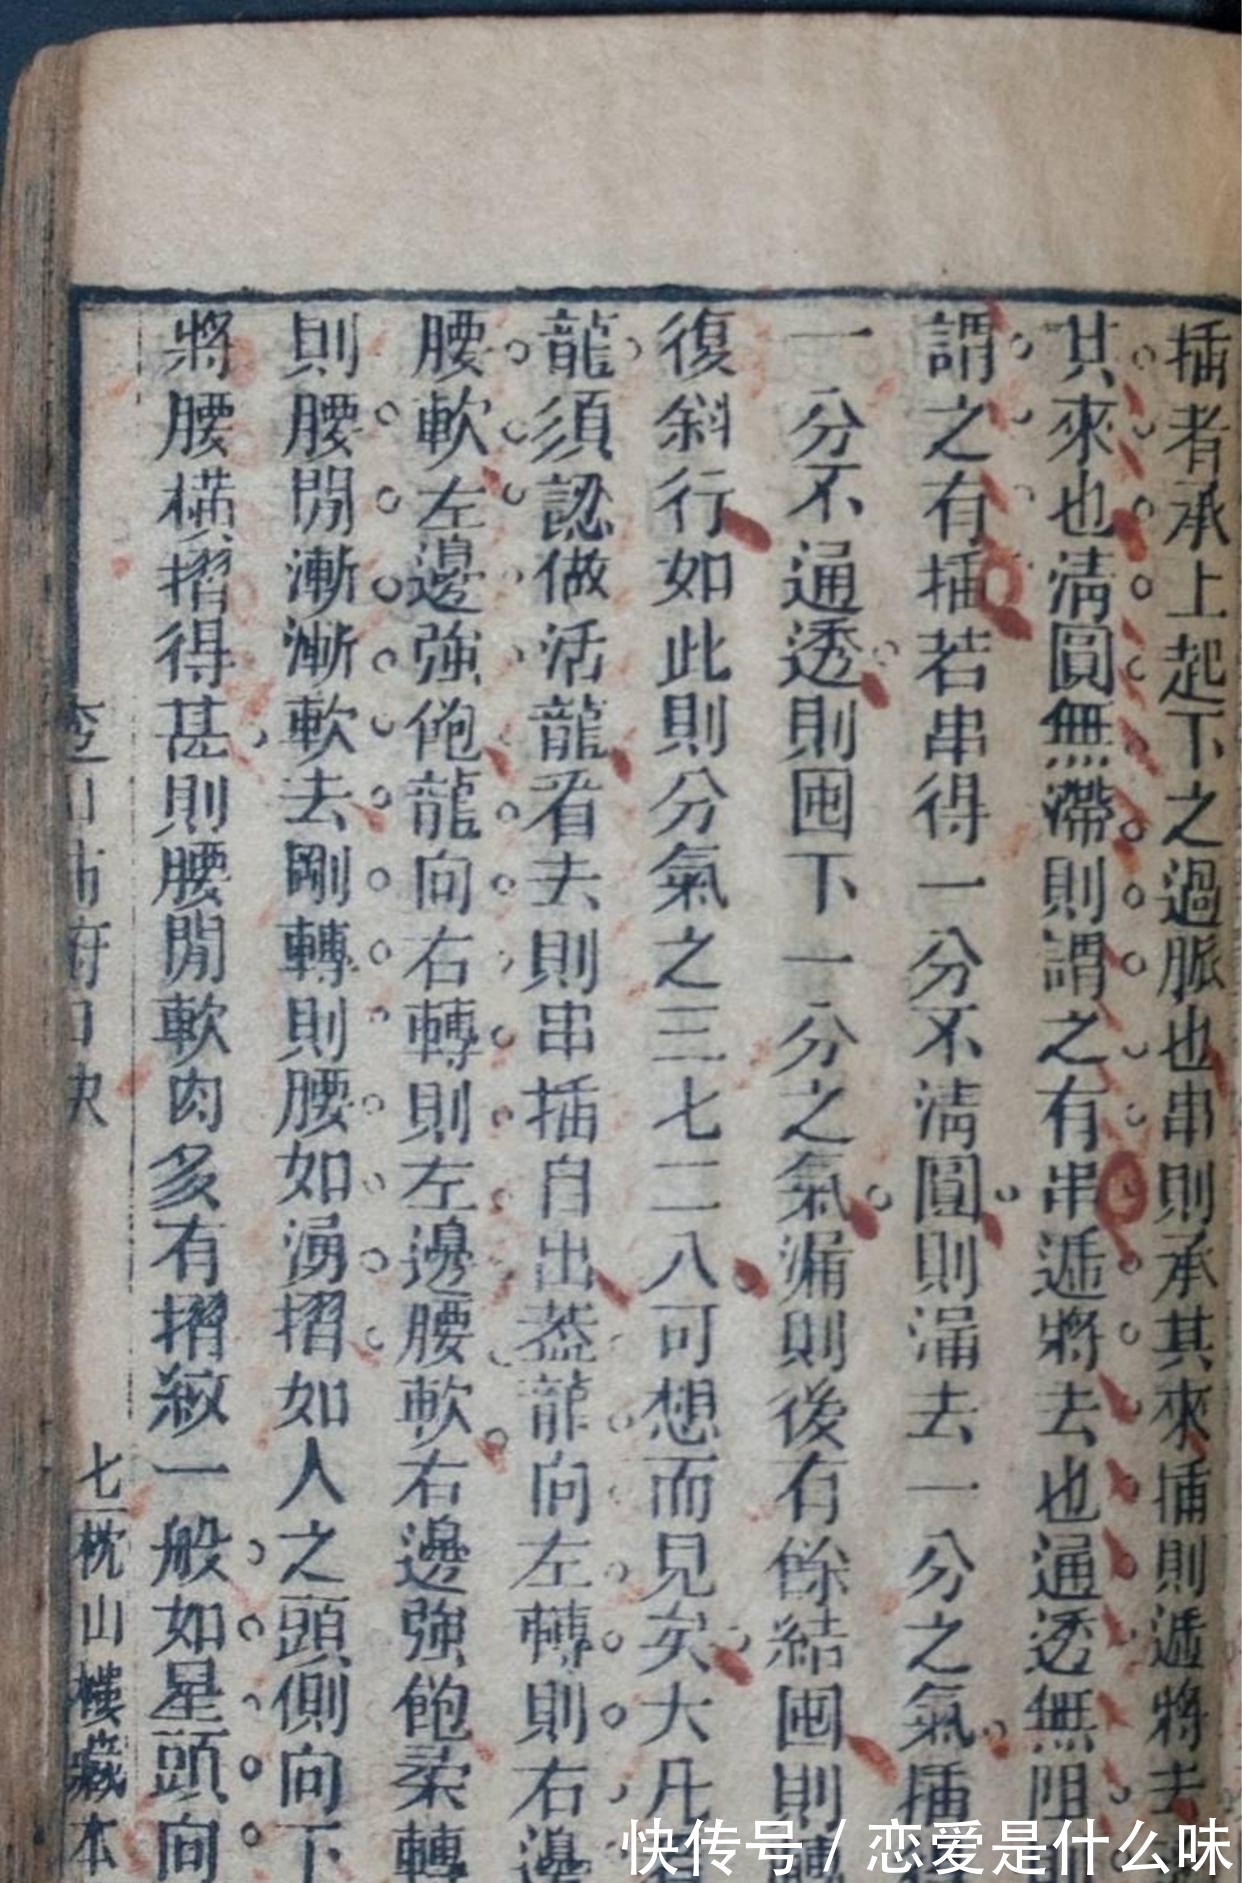 插者承上起下之過脈也串則承其來插則遞將去
其來也淸圓無滯則謂之有串遞將去也通透無阻
謂之有插若串得一分不淸圓則漏去一分之氣插
一分不通透則囤下一分之氣漏則後有餘結囤則
復斜行如此則分氣之三七二八可想而見矣大凡
龍須認做活龍看去則串插自出葢龍向左轉則右邊
腰軟左邊強飽龍向右轉則左邊腰軟右邊強飽柔轉
則腰閒漸漸軟去剛轉則腰如湧摺如人之頭側向下
將腰橫摺得甚則腰閒軟肉多有摺紋一般如星頭向
七 枕山樓藏本
快传号 / 恋爱是什么味